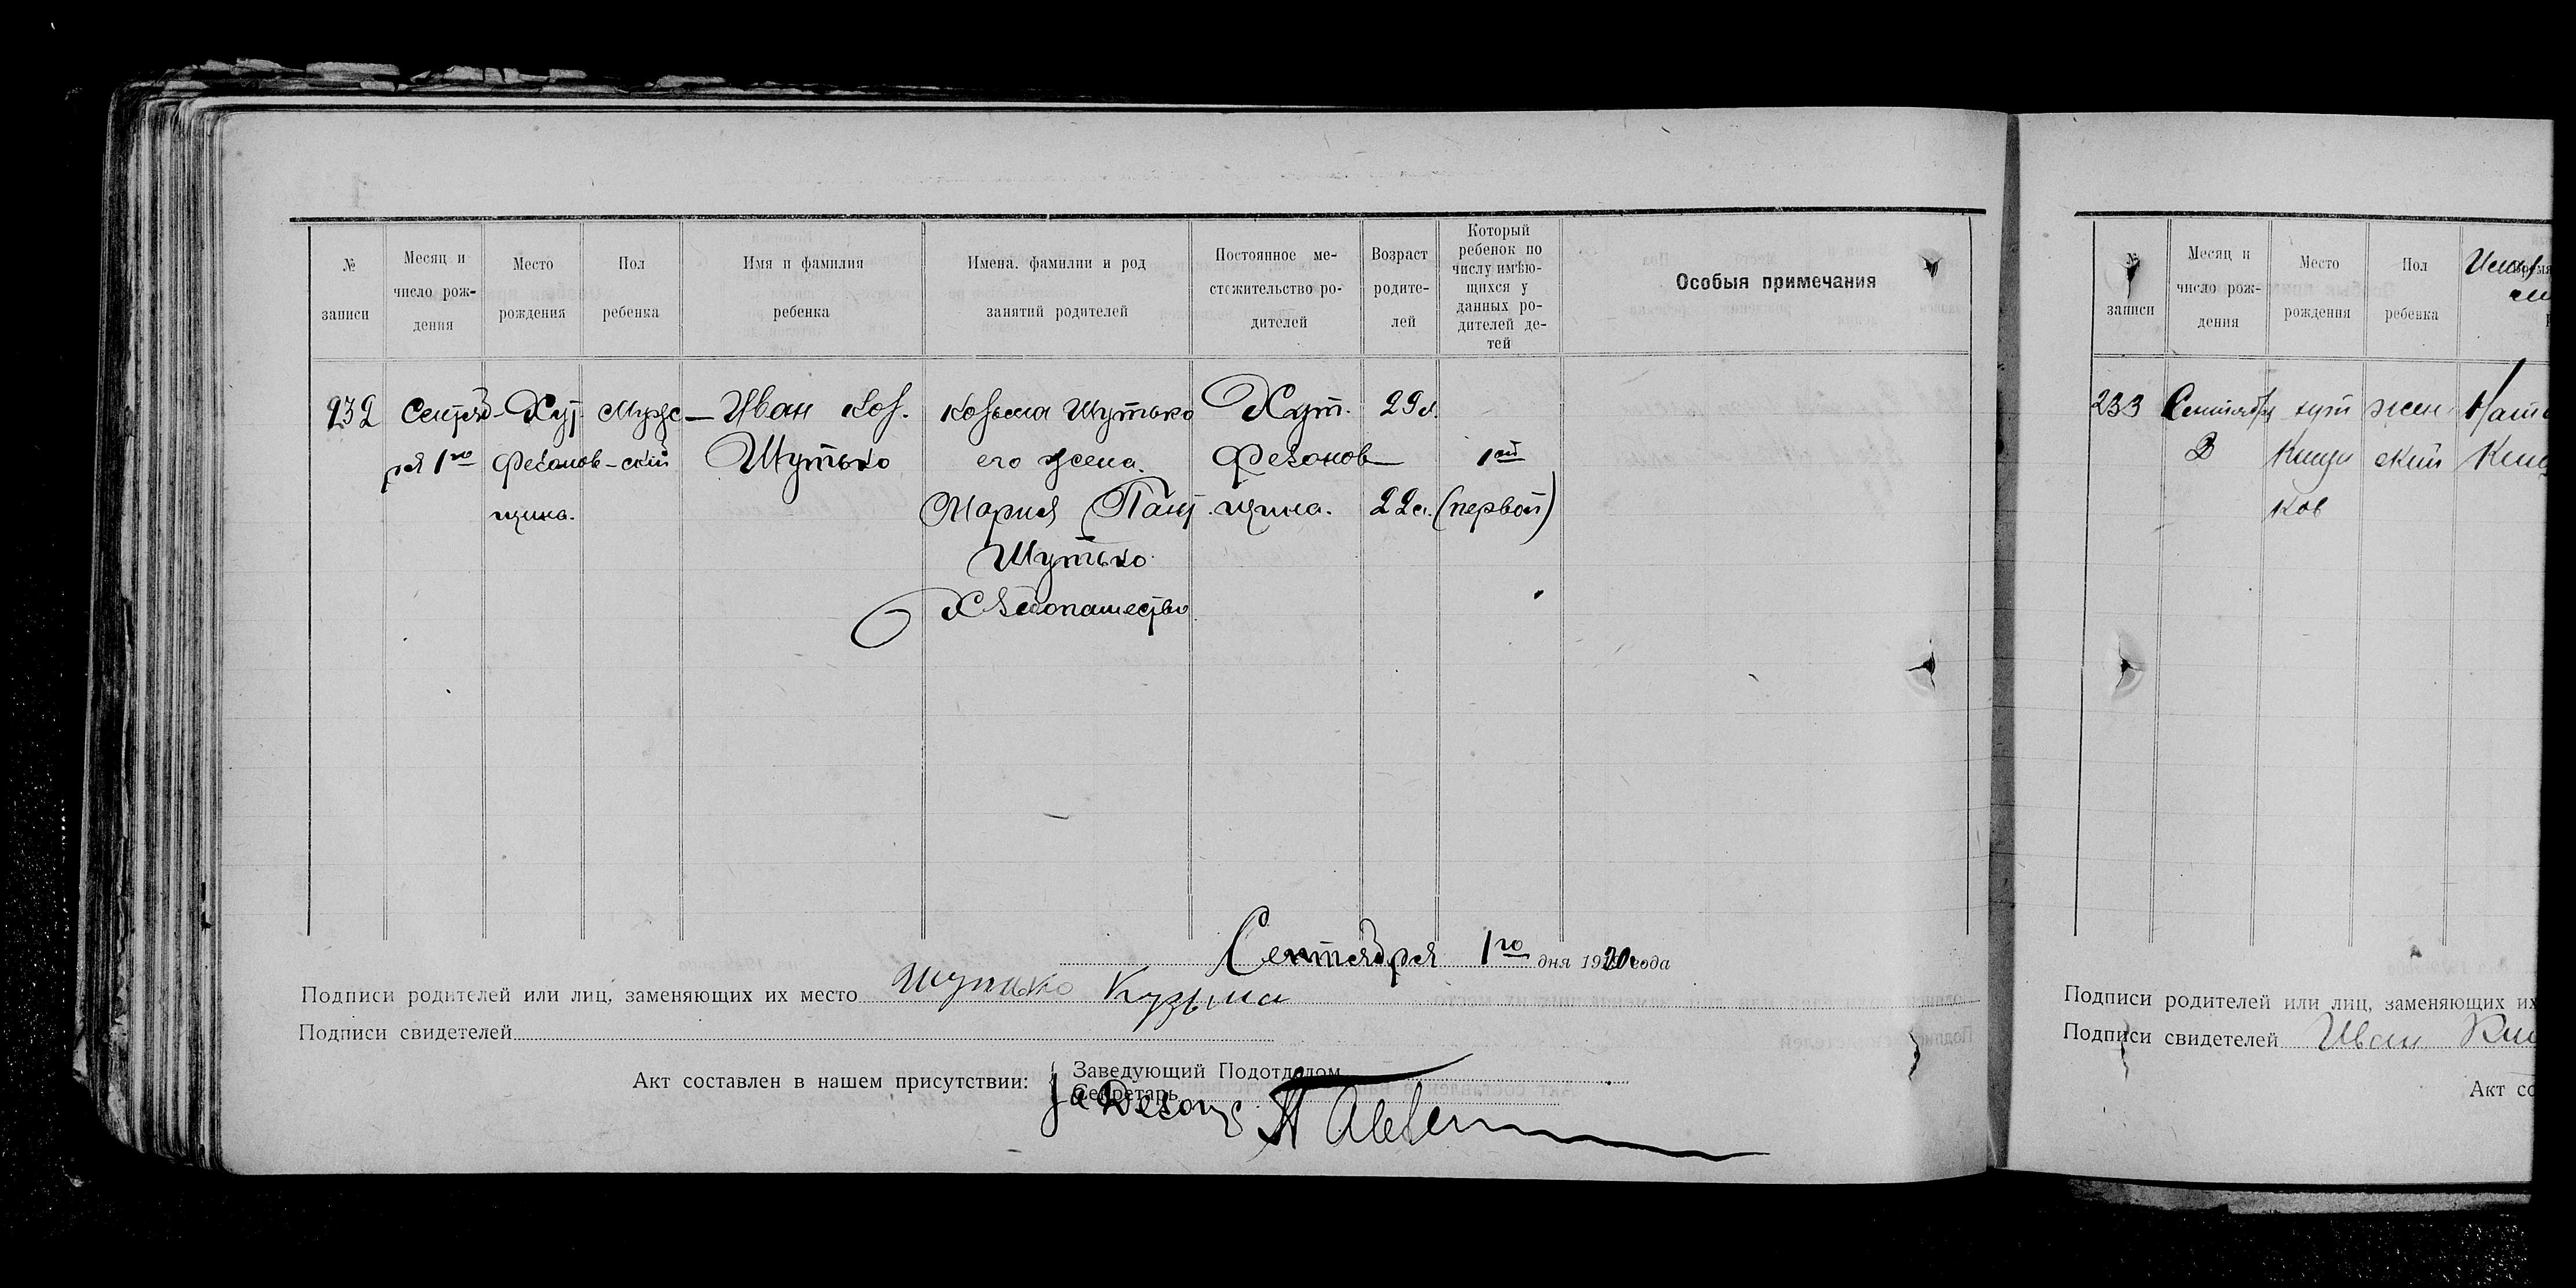 № записи
Месяц и число рождения
Место рождения
Пол ребенка
Имя и фамилия ребенка
Имена, фамилии и род занятий родителей
Постоянное местожительство родителей
Возраст родителей
Который ребенок по числу имѣющихся у данных родителей детей
Особыя примечания
232
Сентяб-
ря 1го
Хут.
Фезонов-
щина.
Мужс-
ский
Иван Коз.
Шутько
Козьма Шутько
его жена.
Мария Пант.
Шутько.
Хлебопашество
Хут.
Фезонов-
щина.
29 л.
22 л.
1ый
(первый)
Сентября 1го дня 1920 года
Подписи родителей или лиц, заменяющих их место Шутько Кузьма
Подписи свидетелей
Акт составлен в нашем присутствии:
Заведующий Подотделом
Секретарь
№ записи
Месяц и число рождения
Место рождения
Пол ребенка
233
Сентября
3
хут
жен
ский
Подписи родителей или лиц, заменяющих их
Подписи свидетелей Иван
Акт со